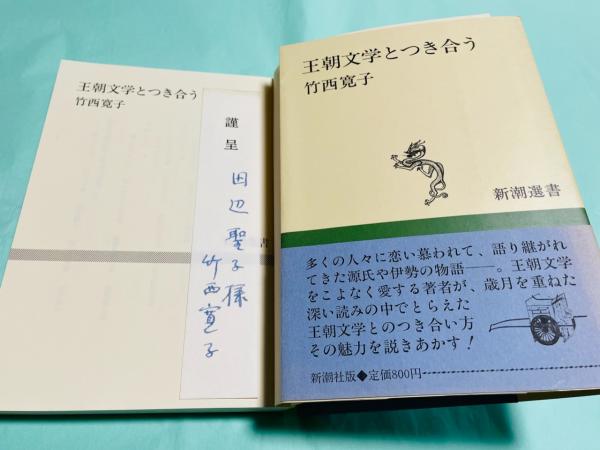 王朝文学とつき合う
竹西寛子
謹呈
田辺聖子様
竹西寛子
書
王朝文学とつき合う
竹西寛子
新潮選書
多くの人々に恋い慕われて、語り継がれ
てきた源氏や伊勢の物語――。王朝文学
をこよなく愛する著者が、歳月を重ねた
深い読みの中でとらえた
王朝文学とのつき合い方
その魅力を説きあかす!
新潮社版◆定価800円